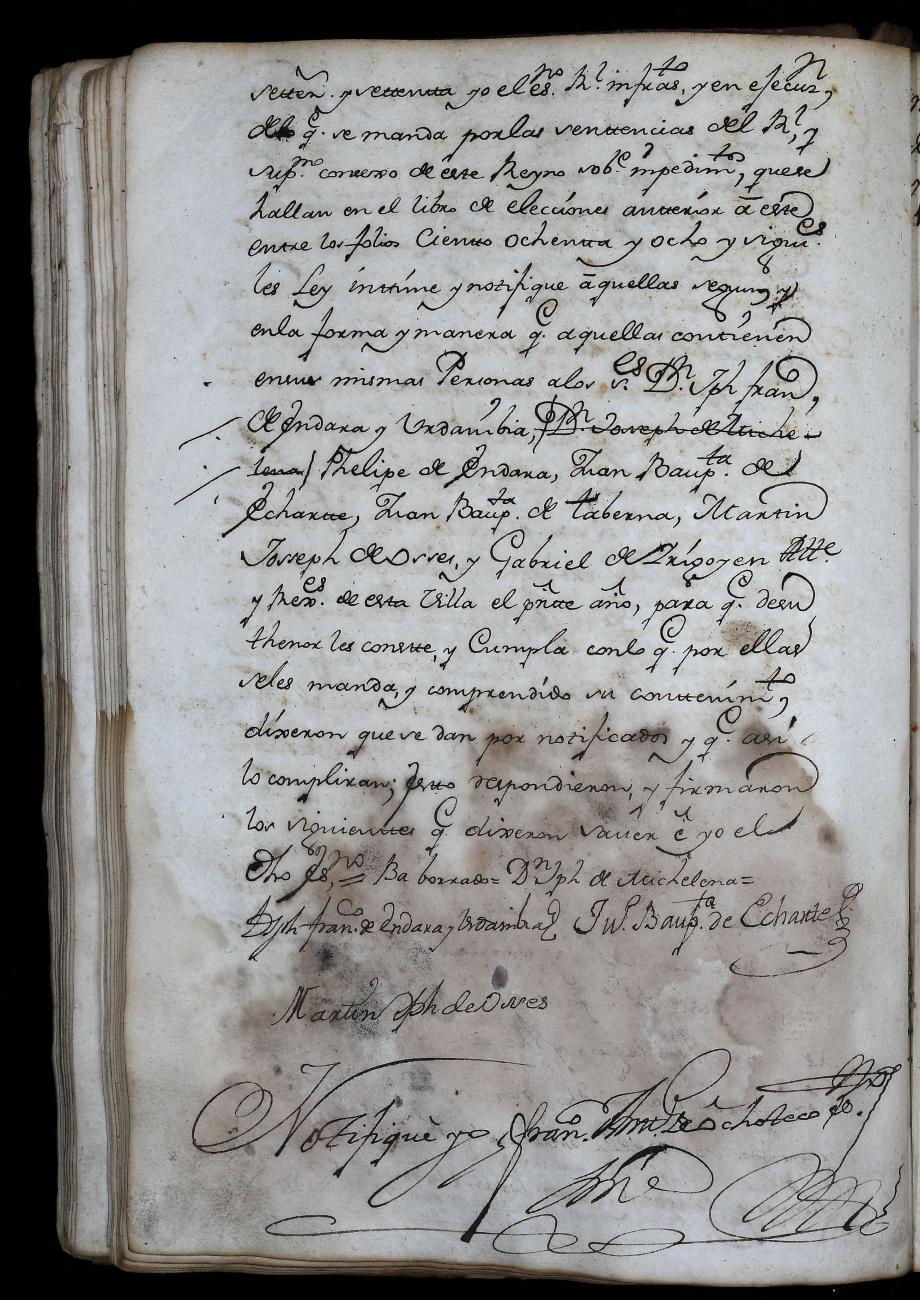 setten. y settenta yo el es.no R.l infras.to, y en efecuz.n,
de lo q.e se manda por las senttencias del R.l, y
sup.mo consexo de este Reyno sob.e impedim.tos, que se
hallan en el libro de elecciones antterior â este
entre los folios Ciento ochentta y ocho y siguі.es
les Ley inttíme y notifique âquellas segun, y
en la forma y manera q.e aquellas conttienen
en sus mismas Personas a los s.es D.n Jph fran.
de Endara y Urdambia, D.n Joseph de Miche-
lena Phelipe de Endara, Juan Baup.ta de
Echartte, Juan Baup.ta de taberna, Martin
Josseph de Osses, y Gabriel de Yrigoyen Alle.
y Rex.es de esta Villa el pñte año, para q.e de su
thenor les constte, y Cumpla con lo q.e por ellas
se les manda, y comprendído su conttením.to,
díxeron que se dan por notificados y q.e así
lo compliran; Estto respondieron, y firmaron
los siguienttes q.e dixeron sauer é yo el
dho Es.no = Ba borrado = D.n Jph de Michelena =
Jph fran.co de Endara y Urdambia Ju.n Baup.ta de Echartte
Martin Jph de Osses
Notifiquè yo fran.co de Ochoteco es.no